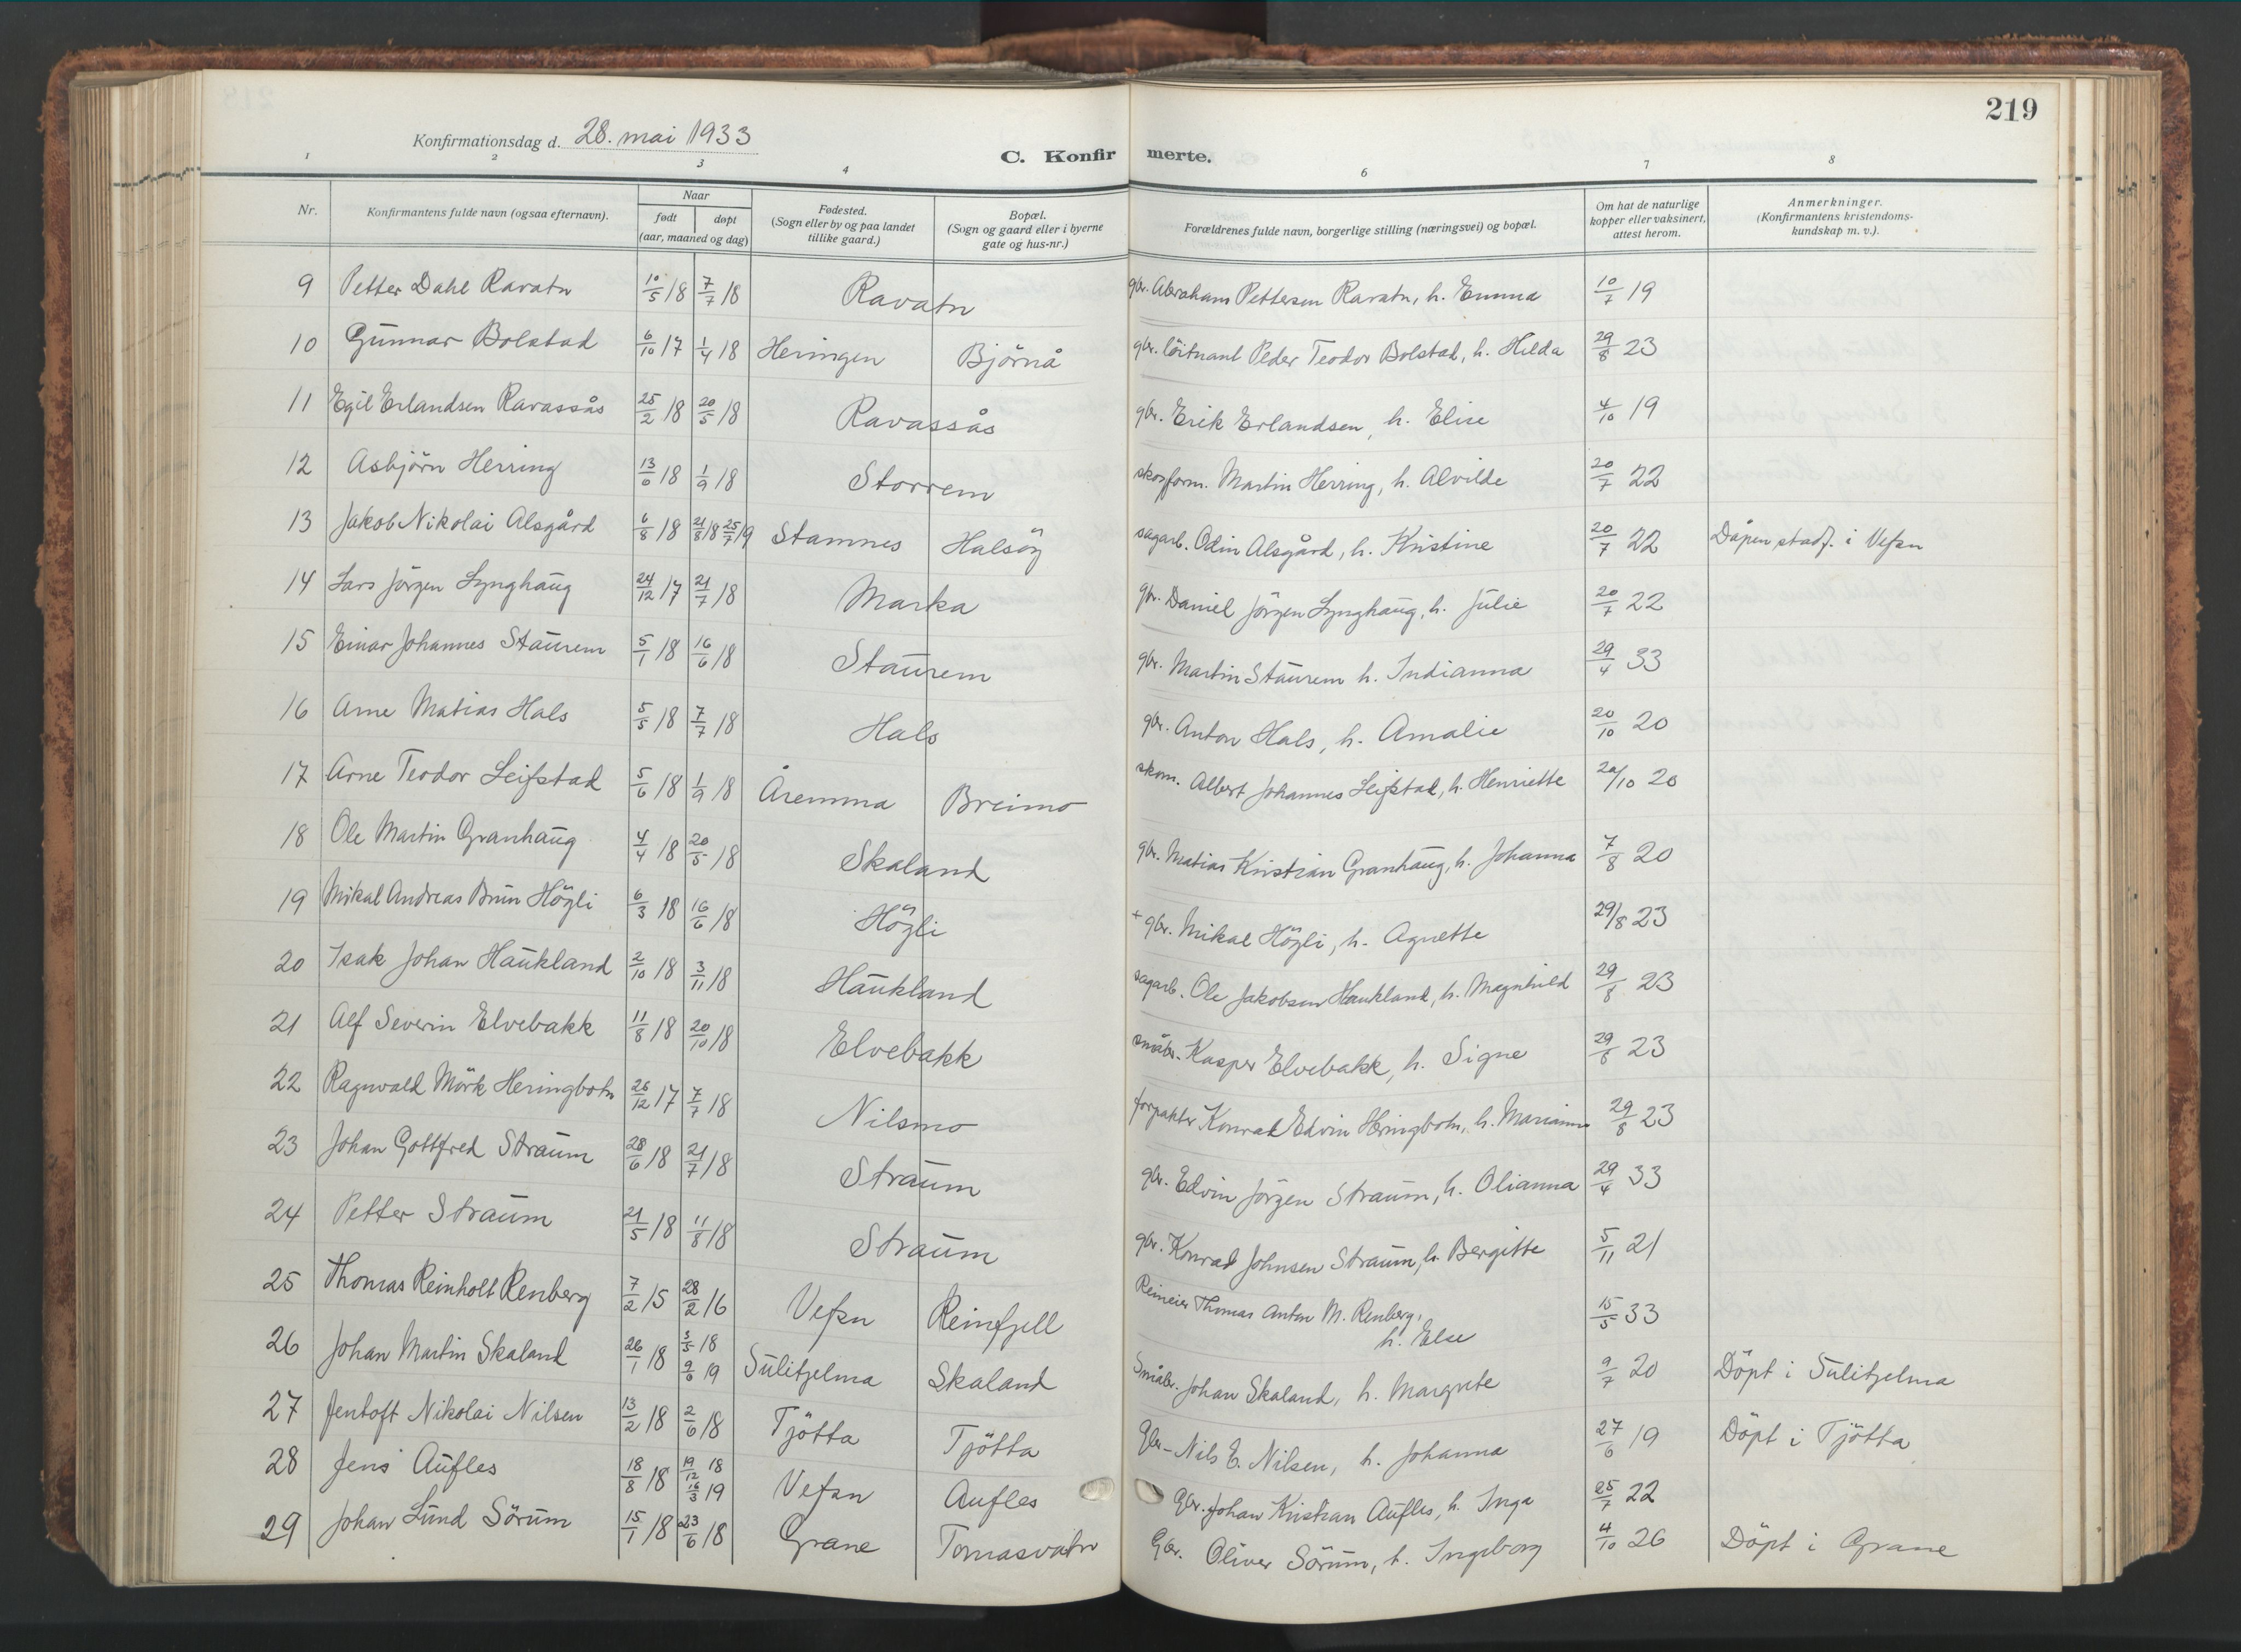 219
Konfirmationsdag d. 28. mai 1933
C. Konfirmerte.
1 2 3 4 6 7 8
Nr. | Konfirmantens fulde navn (ogsaa efternavn). | Naar født døpt (aar, maaned og dag) | Fødested. (Sogn eller by og paa landet tillike gaard.) | Bopæl. (Sogn og gaard eller i byerne gate og hus-nr.) | Forældrenes fulde navn, borgerlige stilling (næringsvei) og bopæl. | Om hat de naturlige kopper eller vaksinert, attest herom. | Anmerkninger. (Konfirmantens kristendoms-kundskap m. v.).
9 Petter Dahl Ravatn 10/5 18 7/7 18 Ravatn gbr. Abraham Pettersen Ravatn, h. Emma 10/7 19
10 Gunnar Bolstad 6/10 17 1/4 18 Heringen Björnå gbr. löitnant Peder Teodor Bolstad, h. Hilda 29/8 23
11 Egil Erlandsen Ravassås 25/2 18 20/5 18 Ravassås gbr. Erik Erlandsen, h. Elise 4/10 19
12 Asbjörn Herring 13/6 18 1/9 18 Storrem skogform. Martin Herring, h. Alvilde 20/7 22
13 Jakob Nikolai Alsgård 6/8 18 21/8 18 25/7 19 Stamnes Halsöy sagarb. Odin Alsgård, h. Kristine 20/7 22 Dåpen stadf. i Vefsn
14 Lars Jörgen Lynghaug 24/12 17 21/7 18 Marka gbr. Daniel Jörgen Lynghaug, h. Julie 20/7 22
15 Einar Johannes Staurem 5/1 18 16/6 18 Staurem gbr. Martin Staurem h. Indianna 29/4 33
16 Arne Matias Hals 5/5 18 7/7 18 Hals gbr. Anton Hals, h. Amalie 20/10 20
17 Arne Teodor Leifstad 5/6 18 1/9 18 Åremma Breimo skom. Albert Johannes Leifstad, h. Henriette 20/10 20
18 Ole Martin Granhaug 4/4 18 20/5 18 Skaland gbr. Matias Kristian Granhaug, h. Johanna 7/8 20
19 Mikal Andreas Brun Högli 6/3 18 16/6 18 Högli + gbr. Mikal Högli, h. Agnette 29/8 23
20 Isak Johan Haukland 2/10 18 3/11 18 Haukland sagarb. Ole Jakobsen Haukland, h. Magnhild 29/8 23
21 Alf Severin Elvebakk 11/8 18 20/10 18 Elvebakk småbr. Kasper Elvebakk, h. Signe 29/8 23
22 Ragnvald Mörk Heringbotn 26/12 17 7/7 18 Nilsmo forpakter Konrad Edvin Heringbotn, h. Marianna 29/8 23
23 Johan Gottfred Straum 28/6 18 21/7 18 Straum gbr. Edvin Jörgen Straum, h. Olianna 29/4 33
24 Petter Straum 21/5 18 11/8 18 Straum gbr. Konrad Johnsen Straum, h. Bergitte 5/11 21
25 Thomas Reinholt Renberg 7/2 15 28/2 16 Vefsn Reinfjell Reineier Thomas Anton M. Renberg, h. Else 15/5 33
26 Johan Martin Skaland 26/1 18 3/5 18 9/6 19 Sulitjelma Skaland Småbr. Johan Skaland, h. Margrete 9/7 20 Döpt i Sulitjelma
27 Jentoft Nikolai Nilsen 13/2 18 2/6 18 Tjötta Tjötta Gbr- Nils E. Nilsen, h. Johanna 27/6 19 Döpt i Tjötta
28 Jens Aufles 18/8 18 19/12 18 16/3 19 Vefsn Aufles Gbr. Johan Kristian Aufles, h. Inga 25/7 22
29 Johan Lund Sörum 15/1 18 23/6 18 Grane Tomasvatn Gbr. Oliver Sörum, h. Ingeborg 4/10 26 Döpt i Grane